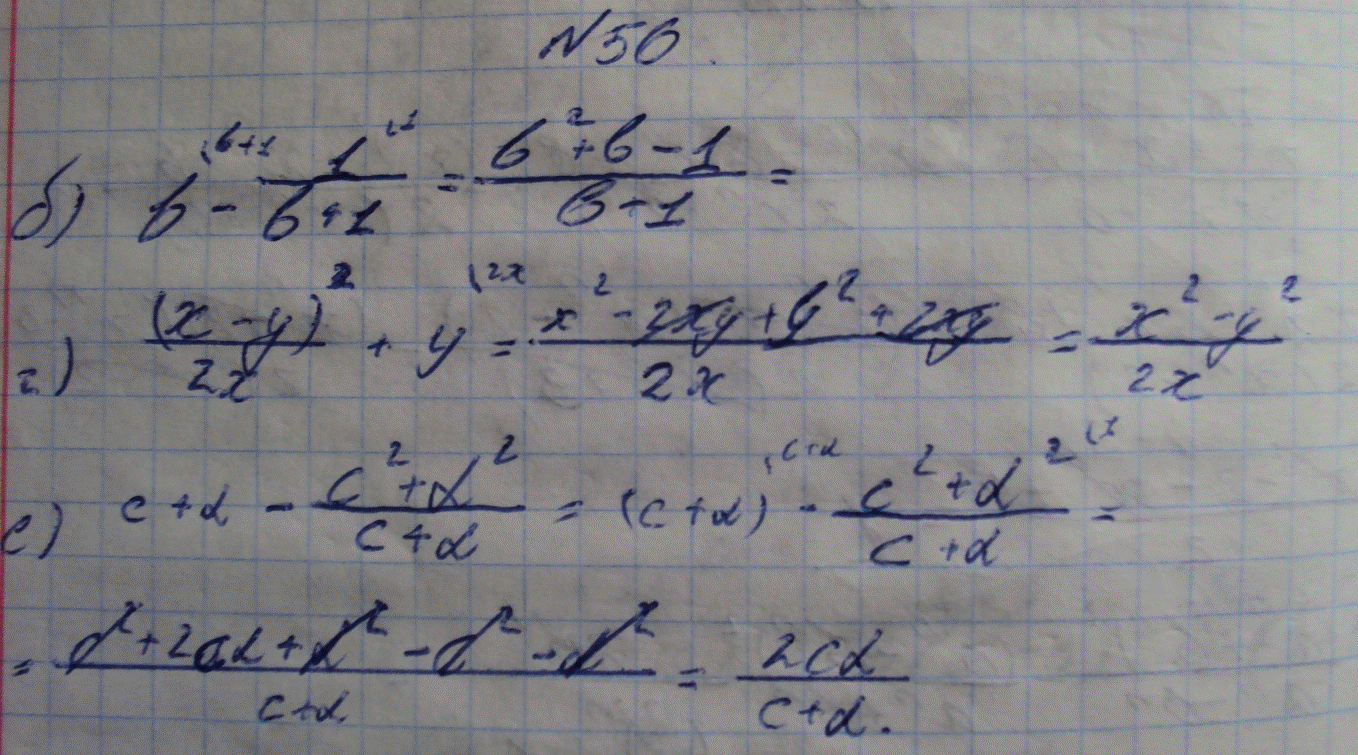 №56.
б) b^{\b+1} - \frac{1^{\1}}{b+1} = \frac{b^2+b-1}{b-1} =
г) \frac{(x-y)^2}{2x} + y^{\2x} = \frac{x^2-2xy+y^2+2xy}{2x} = \frac{x^2-y^2}{2x}
е) c+d - \frac{c^2+d^2}{c+d} = (c+d)^{\c+d} - \frac{c^2+d^2^{\1}}{c+d} =
= \frac{c^2+2cd+d^2-c^2-d^2}{c+d} = \frac{2cd}{c+d}.